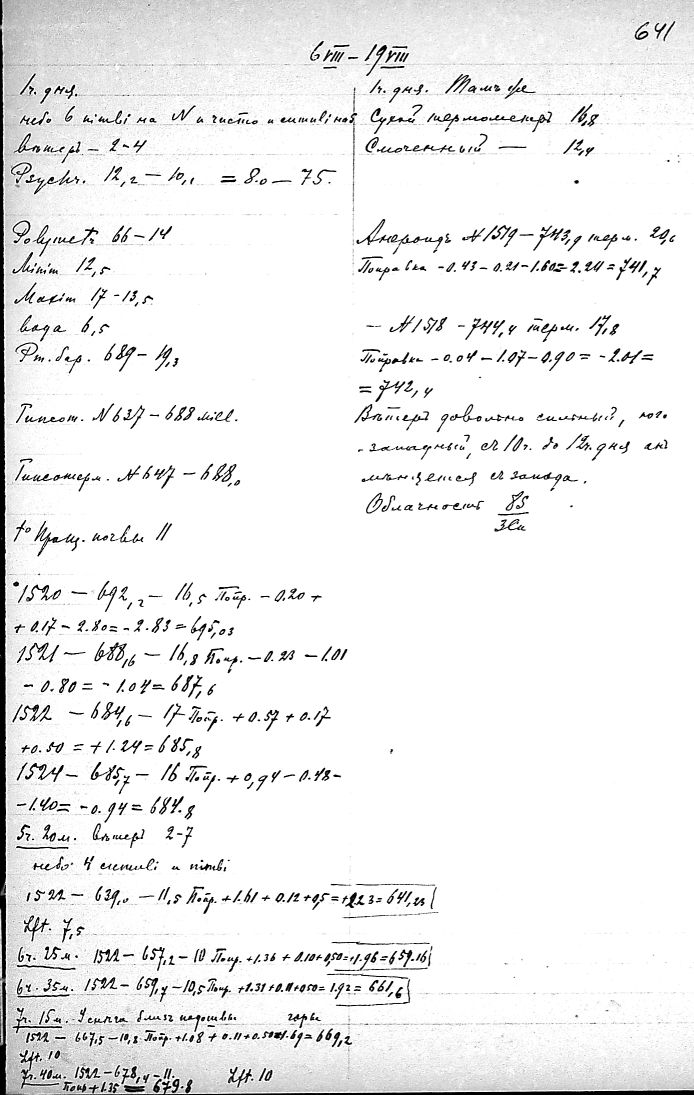 641
6 VIII – 19 VIII
1ч. дня.
небо 6 nimbi на N и чисто и cumuli на S
вѣтеръ – 2-4
Psychr. 12,2 – 10,1 = 8.0 – 75.
Polymetr 66 – 14
Minim 12,5
Maxim 17 – 13,5
вода 6,5
Рт. бар. 689 – 19,3
Гипсот. N 637 – 688 mill.
Гипсотерм. N 647 – 688,0
t° почвы 11
1520 – 692,2 – 16,5 Попр. – 0.20 +
+ 0.17 – 2.80 = – 2.83 = 695,03
1521 – 688,6 – 16,8 Попр. – 0.23 – 1.01
– 0.80 = – 1.04 = 687,6
1522 – 684,6 – 17 Попр. + 0.57 + 0.17
+ 0.50 = + 1.24 = 685,8
1524 – 685,7 – 16 Попр. + 0,94 – 0.48 –
– 1.40 = – 0.94 = 684.8
5ч. 20м. вѣтеръ 2-7
небо 4 cumuli и nimbi
1522 – 639,0 – 11,5 Попр. + 1.61 + 0.12 + 0,5 = + 2.23 = 641,23
Lft. 7,5
6ч. 25м. 1522 – 657,2 – 10 Попр. + 1.36 + 0.10 + 0,50 = + 1.96 = 659.16
6ч. 35м. 1522 – 659,7 – 10,5 Попр. + 1.31 + 0.11 + 0.50 = 1.92 = 661,6
7ч. 15м. У близъ подошвы горы
1522 – 667,5 – 10,8 Попр. + 1.08 + 0.11 + 0.50 = 1.69 = 669,2
Lft. 10
7ч. 40м. 1522 – 678,4 – 11. Lft. 10
Попр + 1.35 = 679.8
1ч. дня. Тамъ же
Сухой термометръ 16,8
Смоченный – 12,4
Анероидъ N 1519 – 743,9 терм. 20,6
Поправка – 0.43 – 0.21 – 1.60 = 2.24 = 741,7
– N 1518 – 744,4 терм. 17,8
Поправка – 0.04 – 1.07 – 0.90 = – 2.01 =
= 742,4
Вѣтеръ довольно сильный, юго-
-западный, съ 10ч. до 12ч. дня
съ запада.
Облачность 85